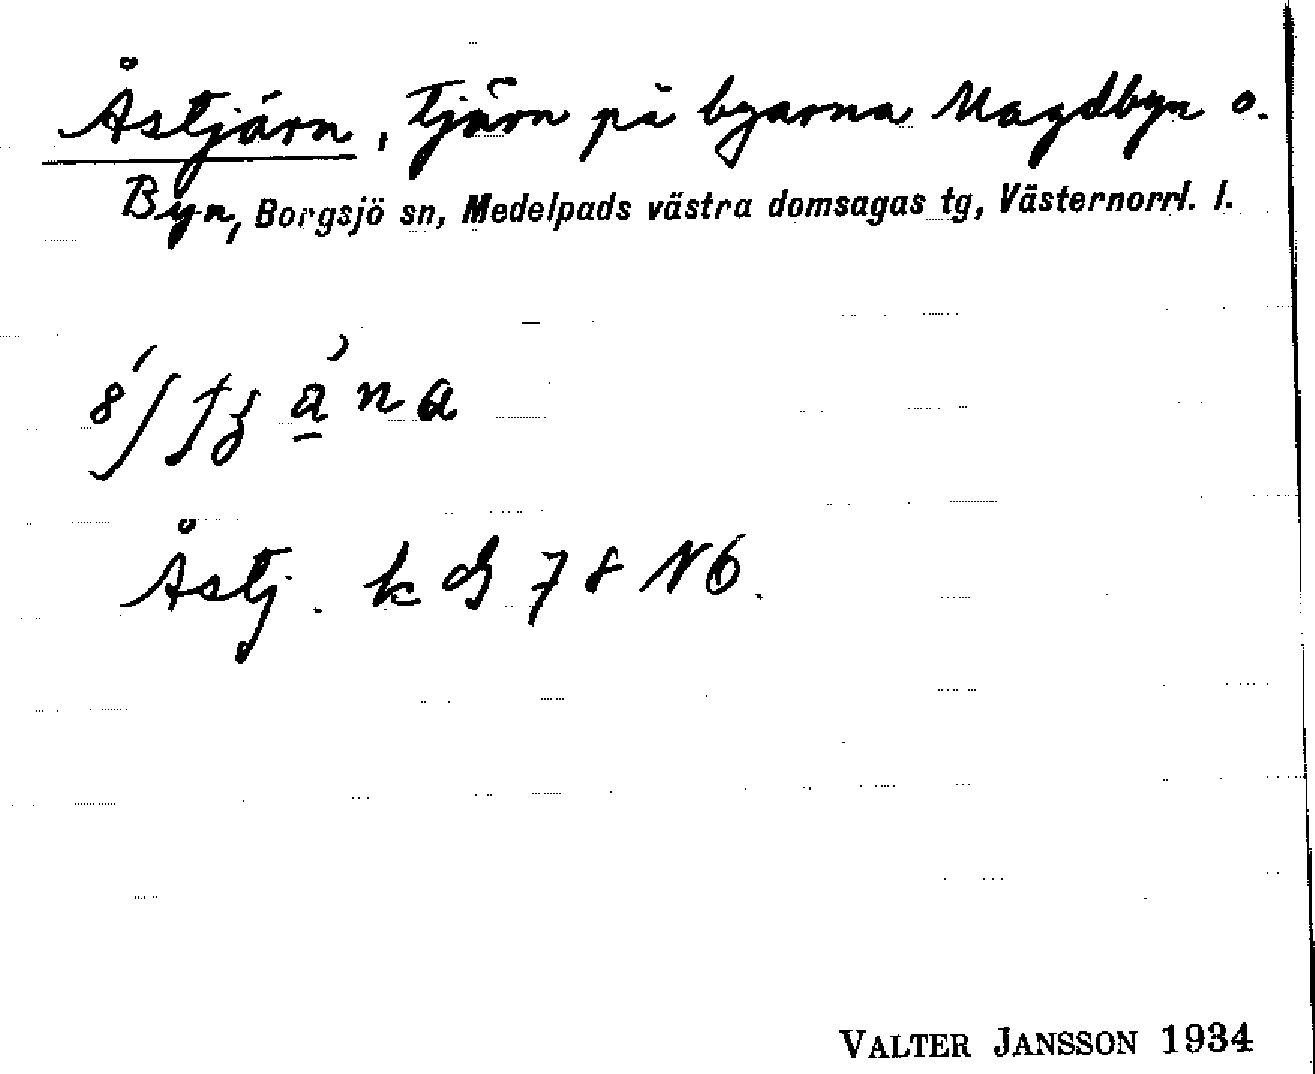 Åstjärn, tjärn på byarna Magdbyn o.
Byn, Borgsjö sn, Medelpads västra domsagas tg, Västernorrl. l.
Åstj. k
78 NÖ.
VALTER JANSSON 1934